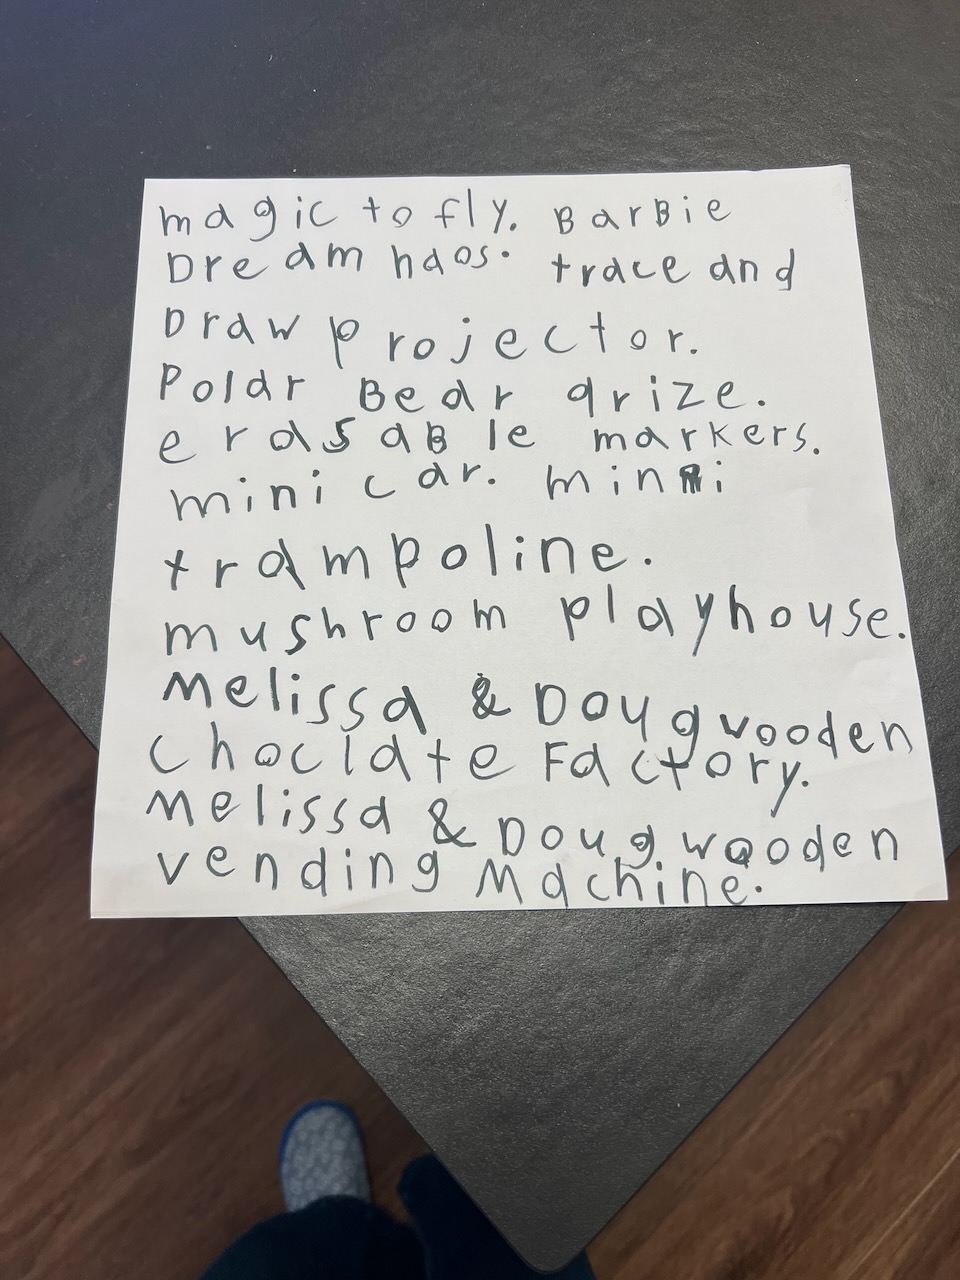 magic to fly. BarBie
Dream haos. trace and
Draw projector.
Polar Bear qrize.
erasaBle markers.
mini car. mini
trampoline.
mushroom playhouse.
Melissa & Doug wooden
choclate Factory.
Melissa & Doug wooden
vending Machine.